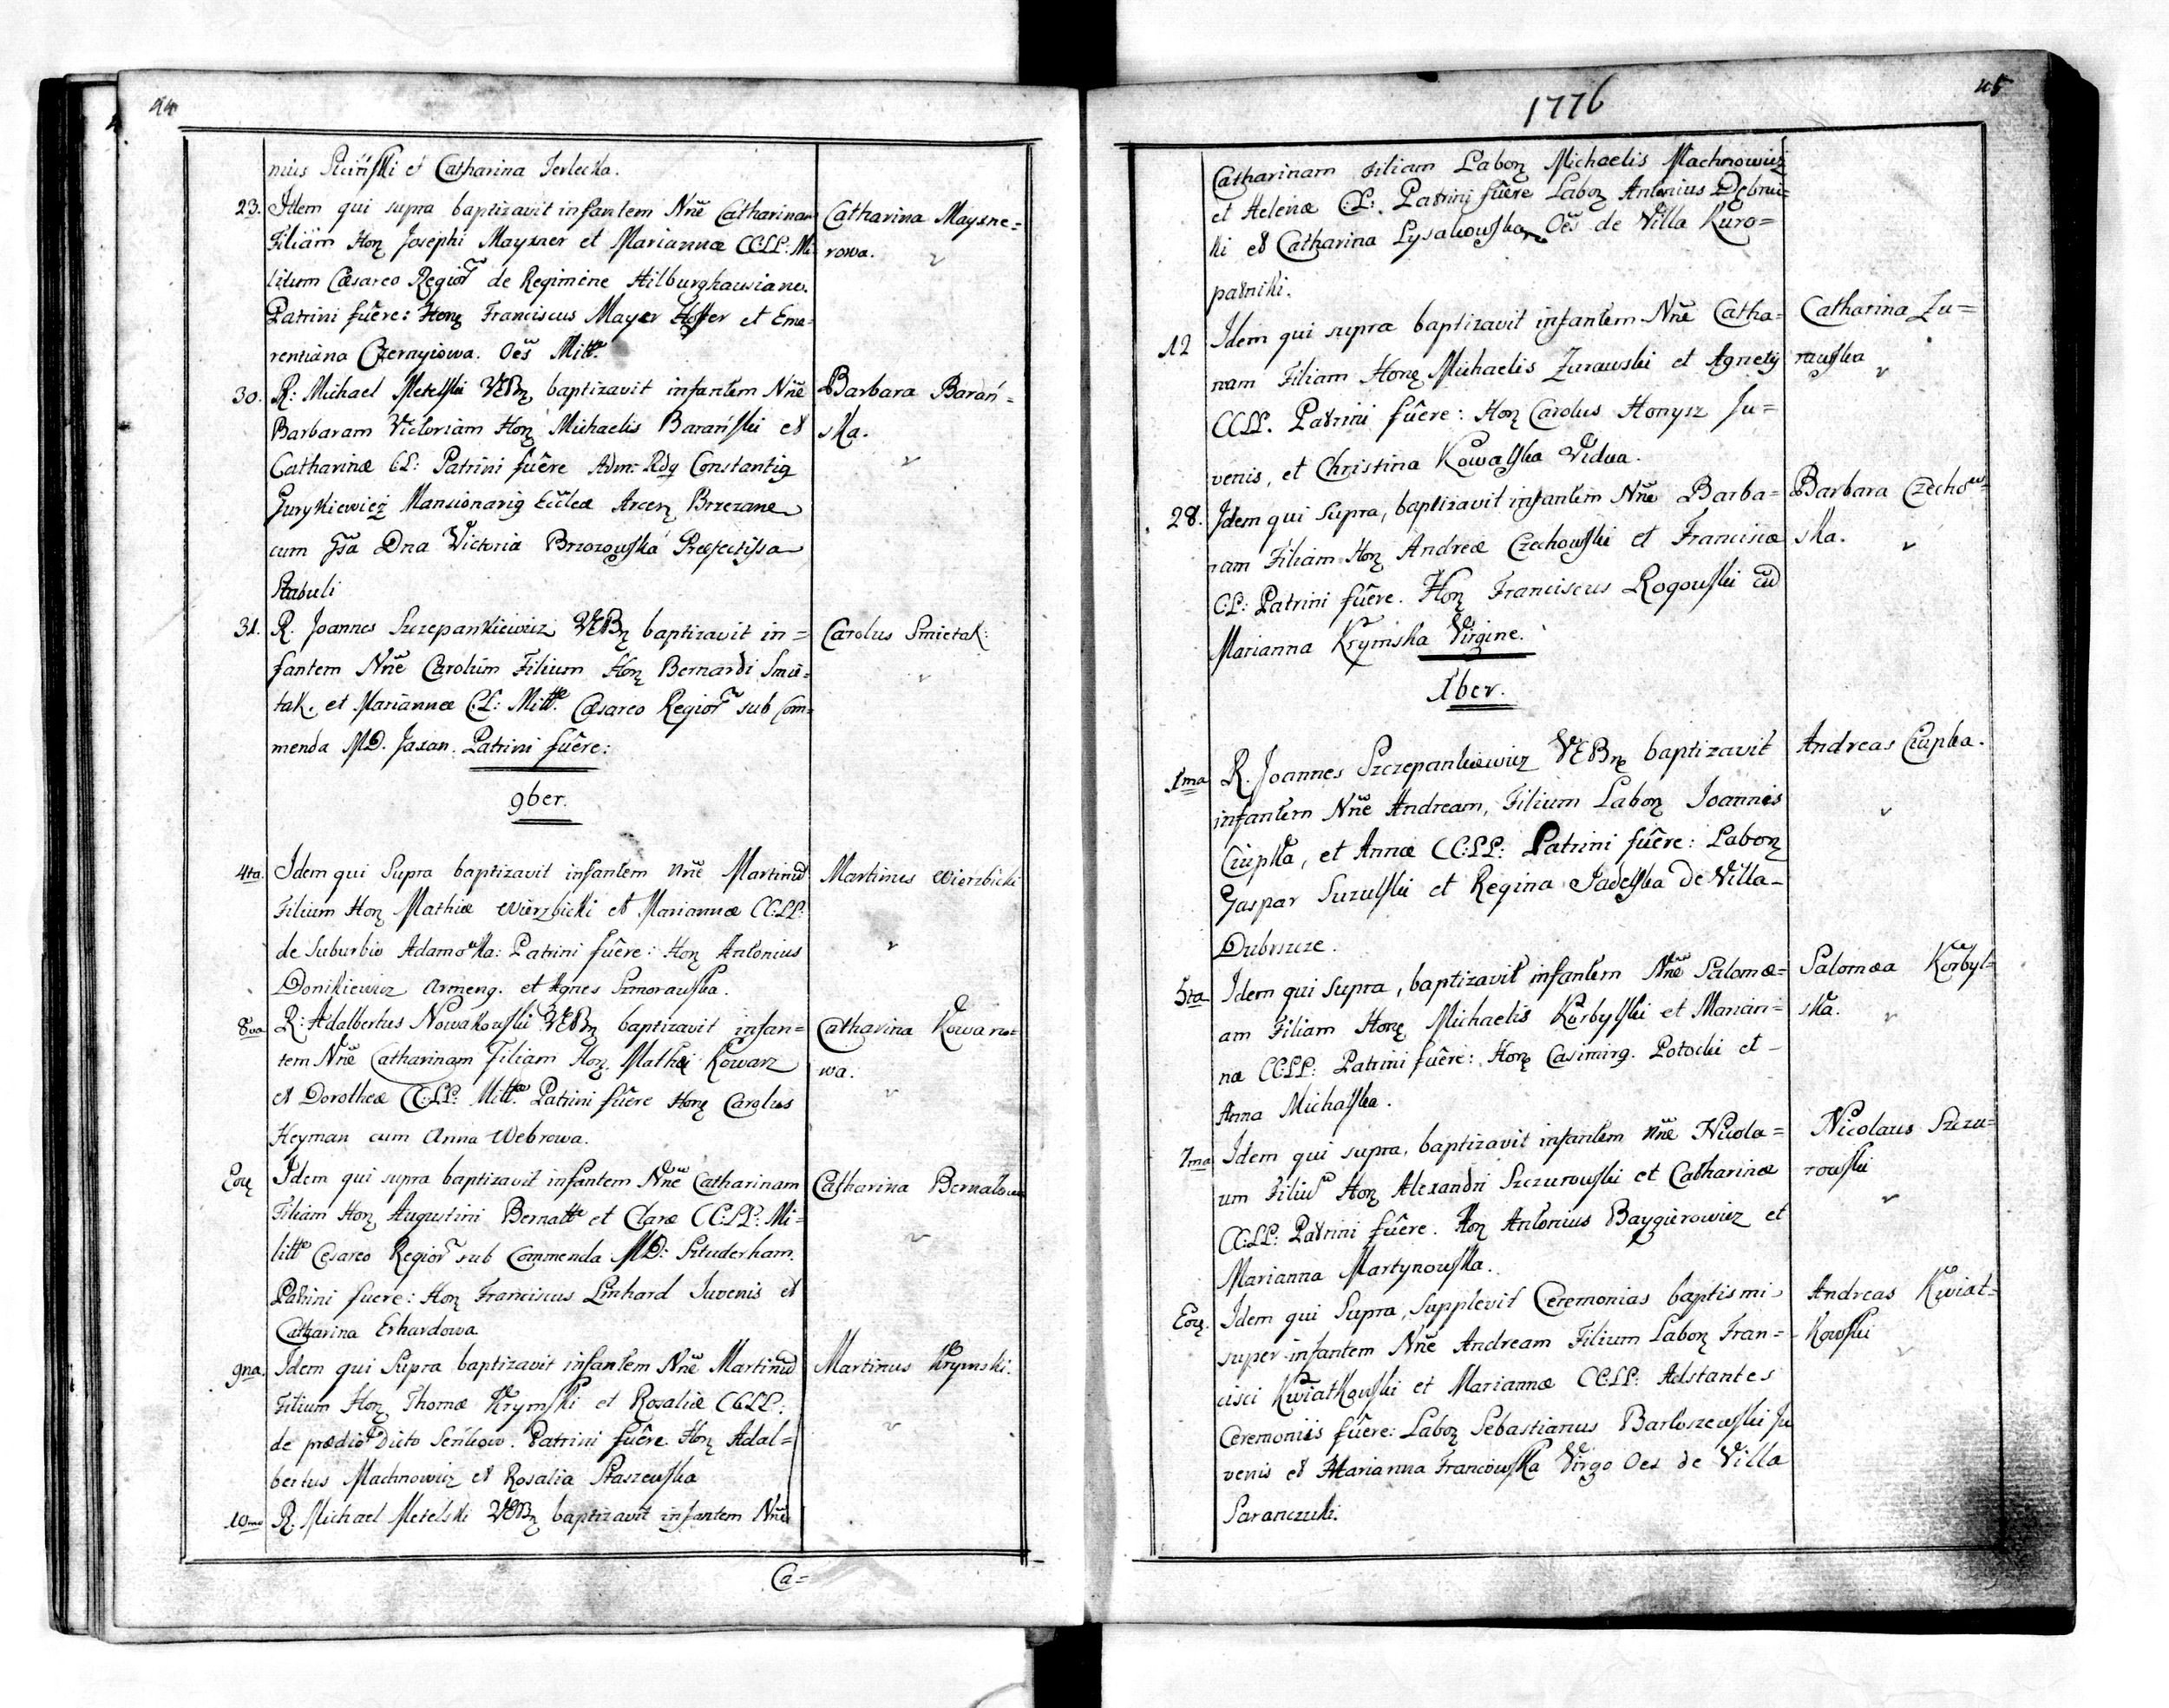 44
nius et Catharina Terlecka.
23. Idem qui supra baptizavit infantem Nn̄e Catharinam
Filiam Hon Josephi Maysner et Mariannæ CCLL: Mi-
litum Cæsareo Regior de Regimine Hilburghausiano.
Patrini fuêre: Hon Franciscus Mayer Hoffer et Eme-
rentiana Czernyiowa. Oēs Mitt.
Catharina Maysne=
rowa.
30. R: Michael Metelski VEB baptizavit infantem Nn̄e
Barbaram Victoriam Hon Michaelis Barański et
Catharinæ CL: Patrini fuêre Adm: Rdg Constantig
Gurykiewicz Mansionarig Ecclæ Arcen Brzezane
cum Gsa Dna Victoria Brzozowska Præfectissa
Stabuli
Barbara Barań=
ska.
31. R. Joannes Szczepankiewicz VEB baptizavit in=
fantem Nn̄e Carolum Filium Hon Bernardi Smie=
tak, et Mariannæ CL: Mitt. Cæsareo Regior sub Com=
menda MD. Jaxan. Patrini fuêre:
Carolus Smietak:
9ber.
4ta. Idem qui Supra baptizavit infantem Nn̄e Martinū
Filium Hon Mathiæ Wierzbicki et Mariannæ CCLL:
de Suburbio Adamowka: Patrini fuêre: Hon Antonius
Donikiewicz Armeng. et Agnes Szmorawska.
Martinus Wierzbicki
8va R: Adalbertus Nowakowski VEB baptizavit infan=
tem Nn̄e Catharinam Filiam Hon Mathei Kowarz
et Dorotheæ CCLL: Mitt. Patrini fuêre Hon Carolus
Heyman cum Anna Webrowa.
Catharina Kowarzo=
wa.
Eoq Idem qui supra baptizavit infantem Nn̄e Catharinam
Filiam Hon Augustini Bernatt et Claræ CCLL: Mi=
litt Cesareo Regior sub Commenda MD: Sztuderham.
Patrini fuere: Hon Franciscus Linhard Iuvenis et
Catharina Erhardowa
Catharina Bernatowa
9na. Idem qui Supra baptizavit infantem Nn̄e Martinū
Filium Hon Thomæ Krymski et Rosaliæ CCLL:
de prædio Dicto Seńkow. Patrini fuêre Hon Adal=
bertus Machnowicz et Rosalia Staszewska
Martinus Krymski.
10ma R. Michael Metelski VEB baptizavit infantem Nn̄e
Ca=
1776
45
Catharinam Filiam Labon Michaelis Machnowicz
et Helenæ CL: Patrini fuêre Labon Antonius Dębnic=
ki et Catharina Lysakowska, Oēs de Villa Kuro=
patniki.
12 Idem qui supra baptizavit infantem Nn̄e Catha=
nam Filiam Hon Michaelis Zurawski et Agnetis
CCLL. Patrini fuêre: Hon Carolus Honysz Ju=
venis, et Christina Kowalska Vidua.
Catharina Zu=
rawska
28. Idem qui Supra, baptizavit infantem Nn̄e Barba=
ram Filiam Hon Andreæ Czechowski et Franciscæ
CL: Patrini fuêre. Hon Franciscus Rogowski cū
Marianna Krymska Virgine.
Barbara Czechow=
ska.
Xber.
1ma R. Joannes Szczepankiewicz VEB baptizavit
infantem Nn̄e Andream, Filium Labon Ioannis
Ciupka, et Annæ CCLL: Patrini fuêre: Labon
Gaspar Suzulski et Regina Sadelska De Villa
Dubszcze.
Andreas Ciupka.
5ta Idem qui Supra, baptizavit infantem Nn̄e Salomæ=
am Filiam Hon Michaelis Korbylski et Marian=
næ CCLL: Patrini fuêre: Hon Casimirg. Potocki et
Anna Michalska.
Salomæa Korbyl=
ska.
7ma Idem qui supra, baptizavit infantem Nn̄e Nicola=
um Filiū Hon Alexandri Szczurowski et Catharinæ
CCLL: Patrini fuêre. Hon Antonius Baygierowicz et
Marianna Martynowska.
Nicolaus Szczu=
rowski
Eoq. Idem qui Supra, Supplevit Ceremonias baptismi
super infantem Nn̄e Andream Filium Labon Fran=
cisci Kwiatkowski et Mariannæ CCLL: Adstantes
Ceremoniis fuêre: Labon Sebastianus Bartoszewski Ju
venis et Marianna Francowska Virgo Oes de Villa
Saranczuki.
Andreas Kwiat=
kowski